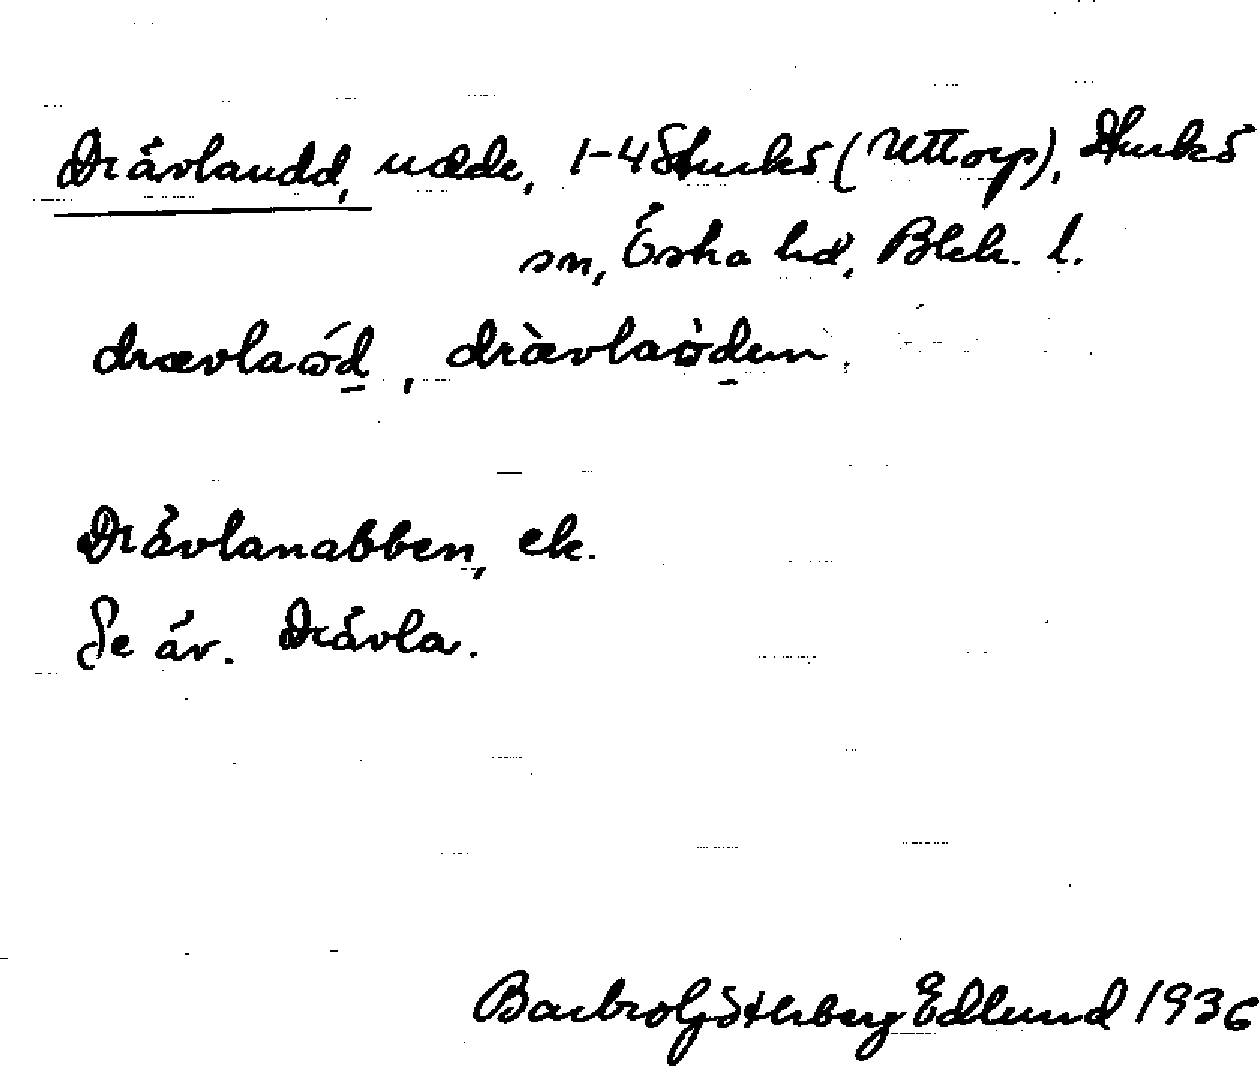 Drävlaudd, udde, 1-4 Sturkö (Uttorp), Sturkö
sn, Östra hd, Blek. l.
drævlaød, drævlaødęn.
Drävlanabben, ek.
Se äv. Drävla.
Barbro Götherberg Edlund 1936